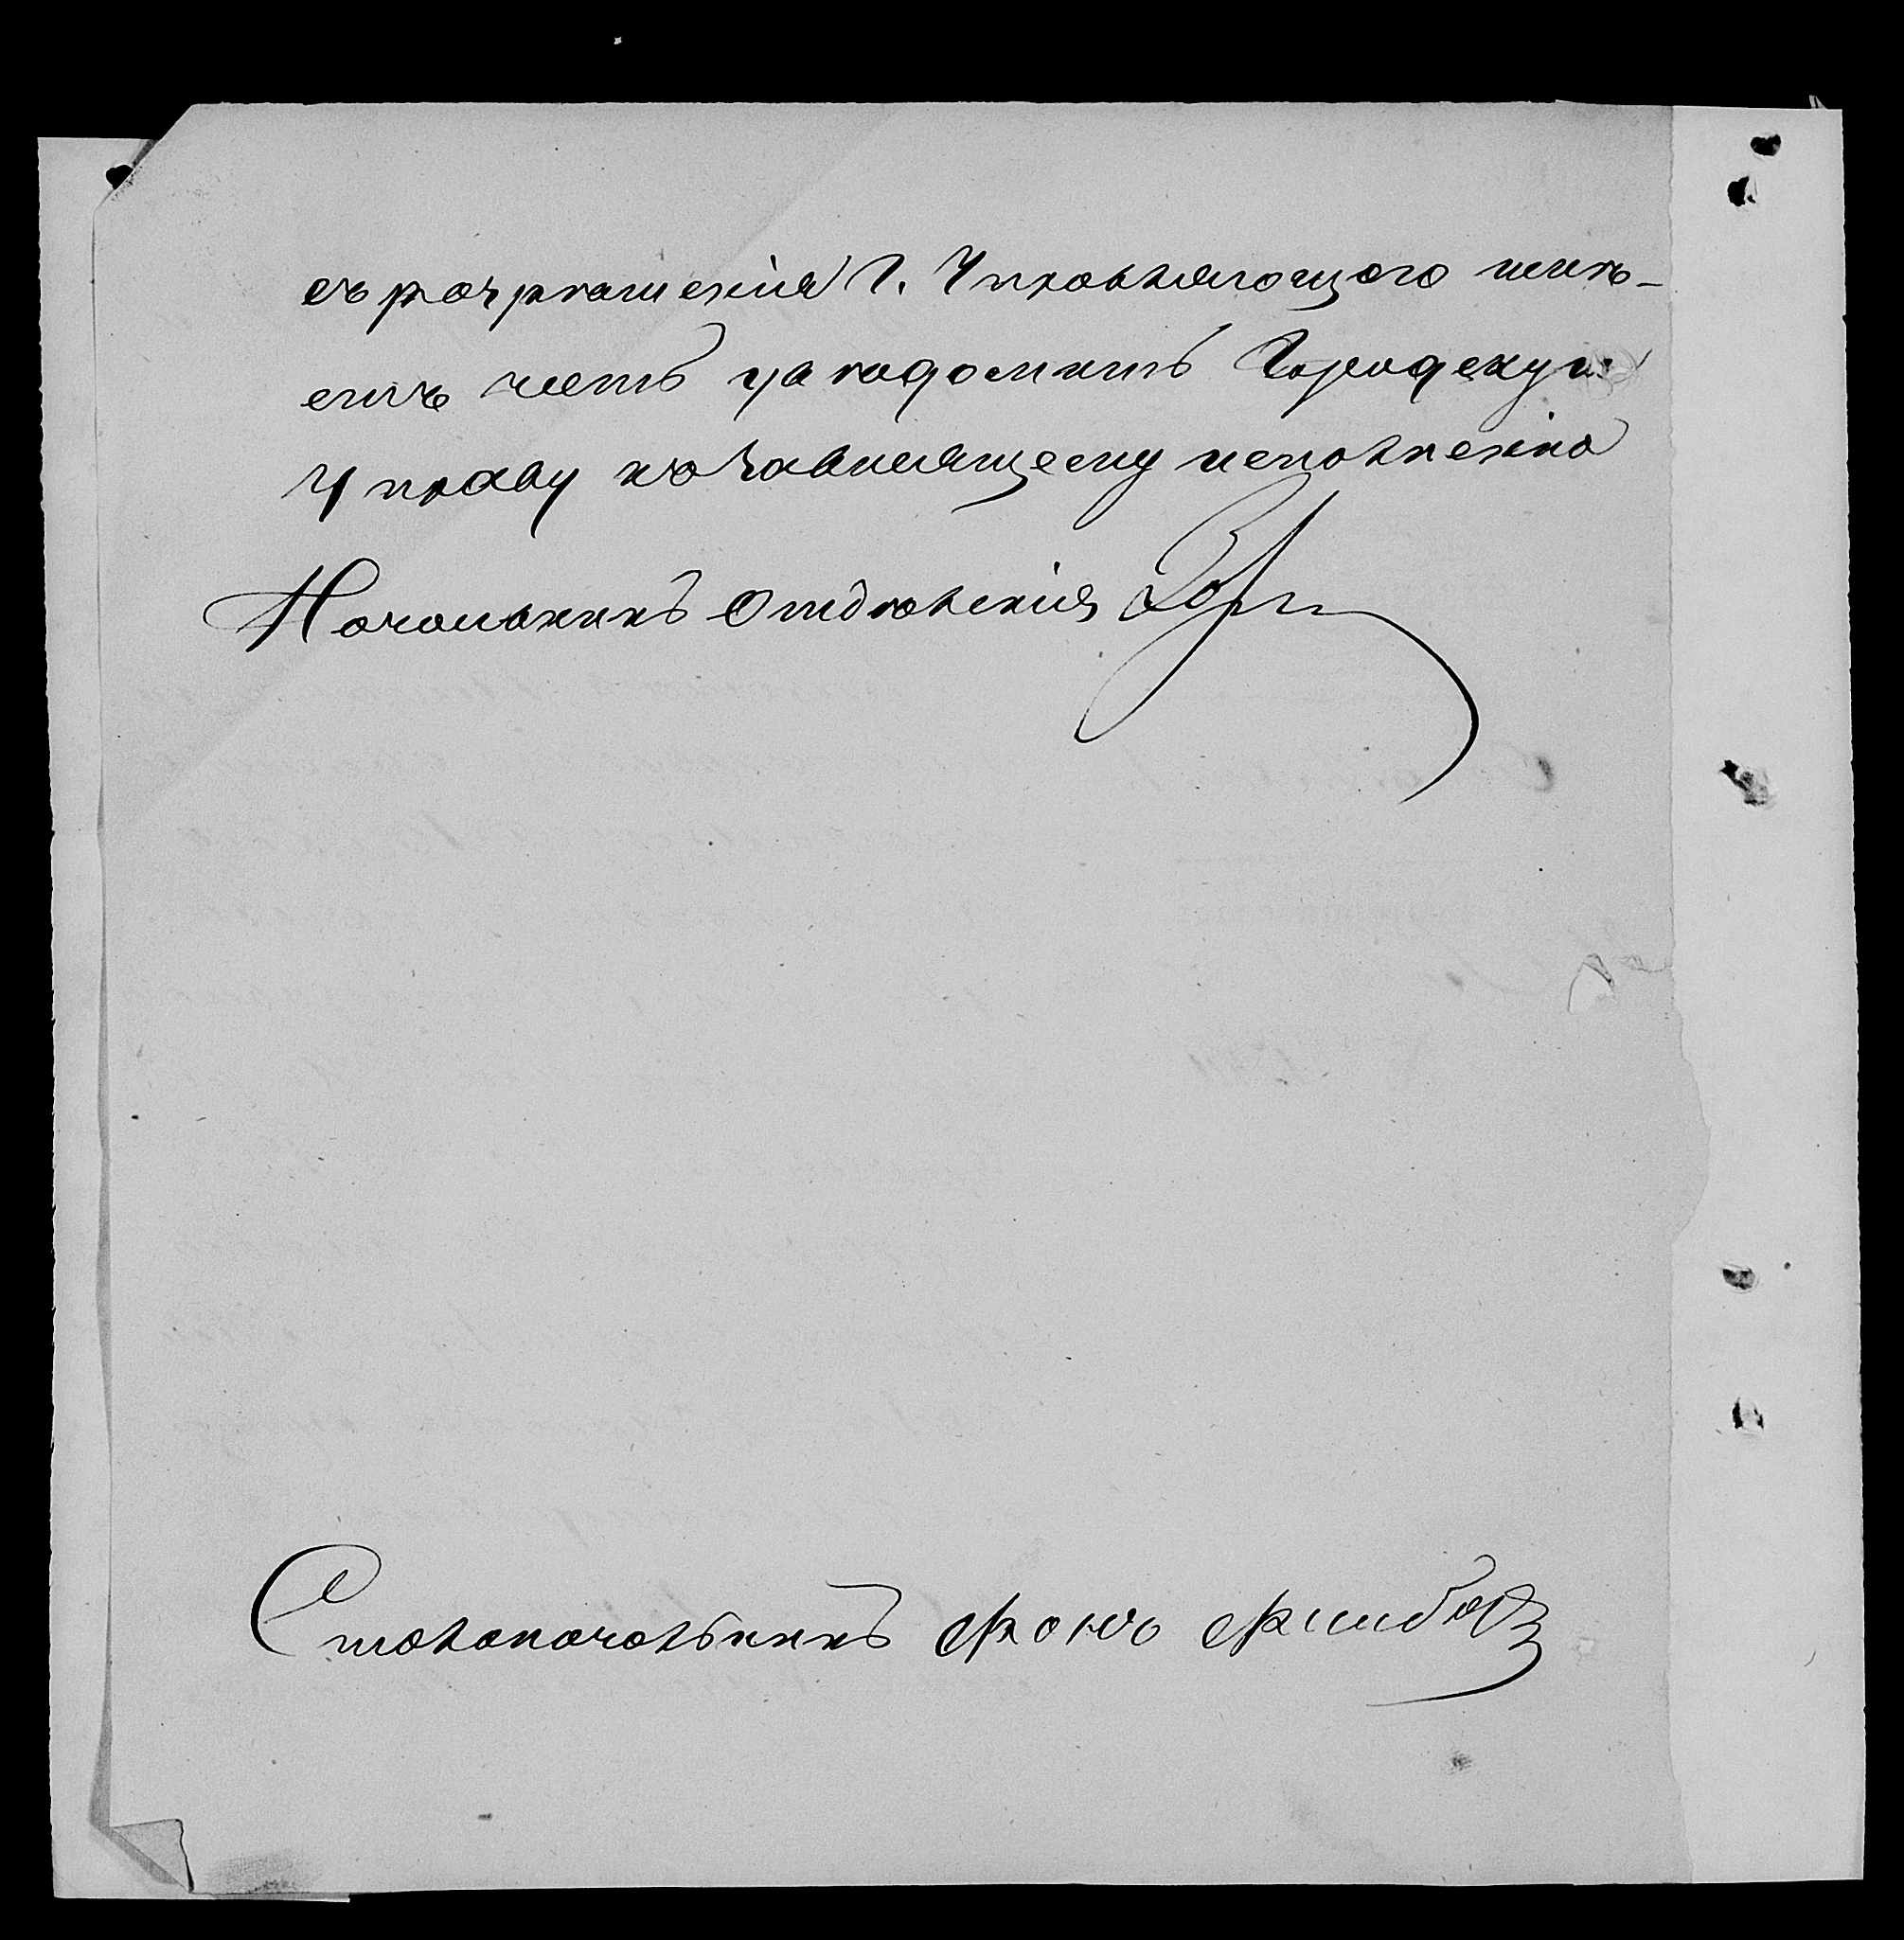 съ разрѣшенія Г. Управляющаго имѣ-
етъ честь увѣдомить Городскую
Управу къ зависящему исполненію
Начальникъ Отдѣленія
Столоначальникъ фонъ